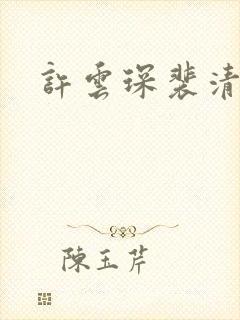 許雲琛裴清
陳玉芹